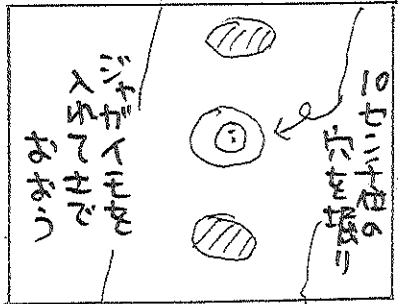 10センチ程の
穴を掘り
ジャガイモを
入れて土で
おおう